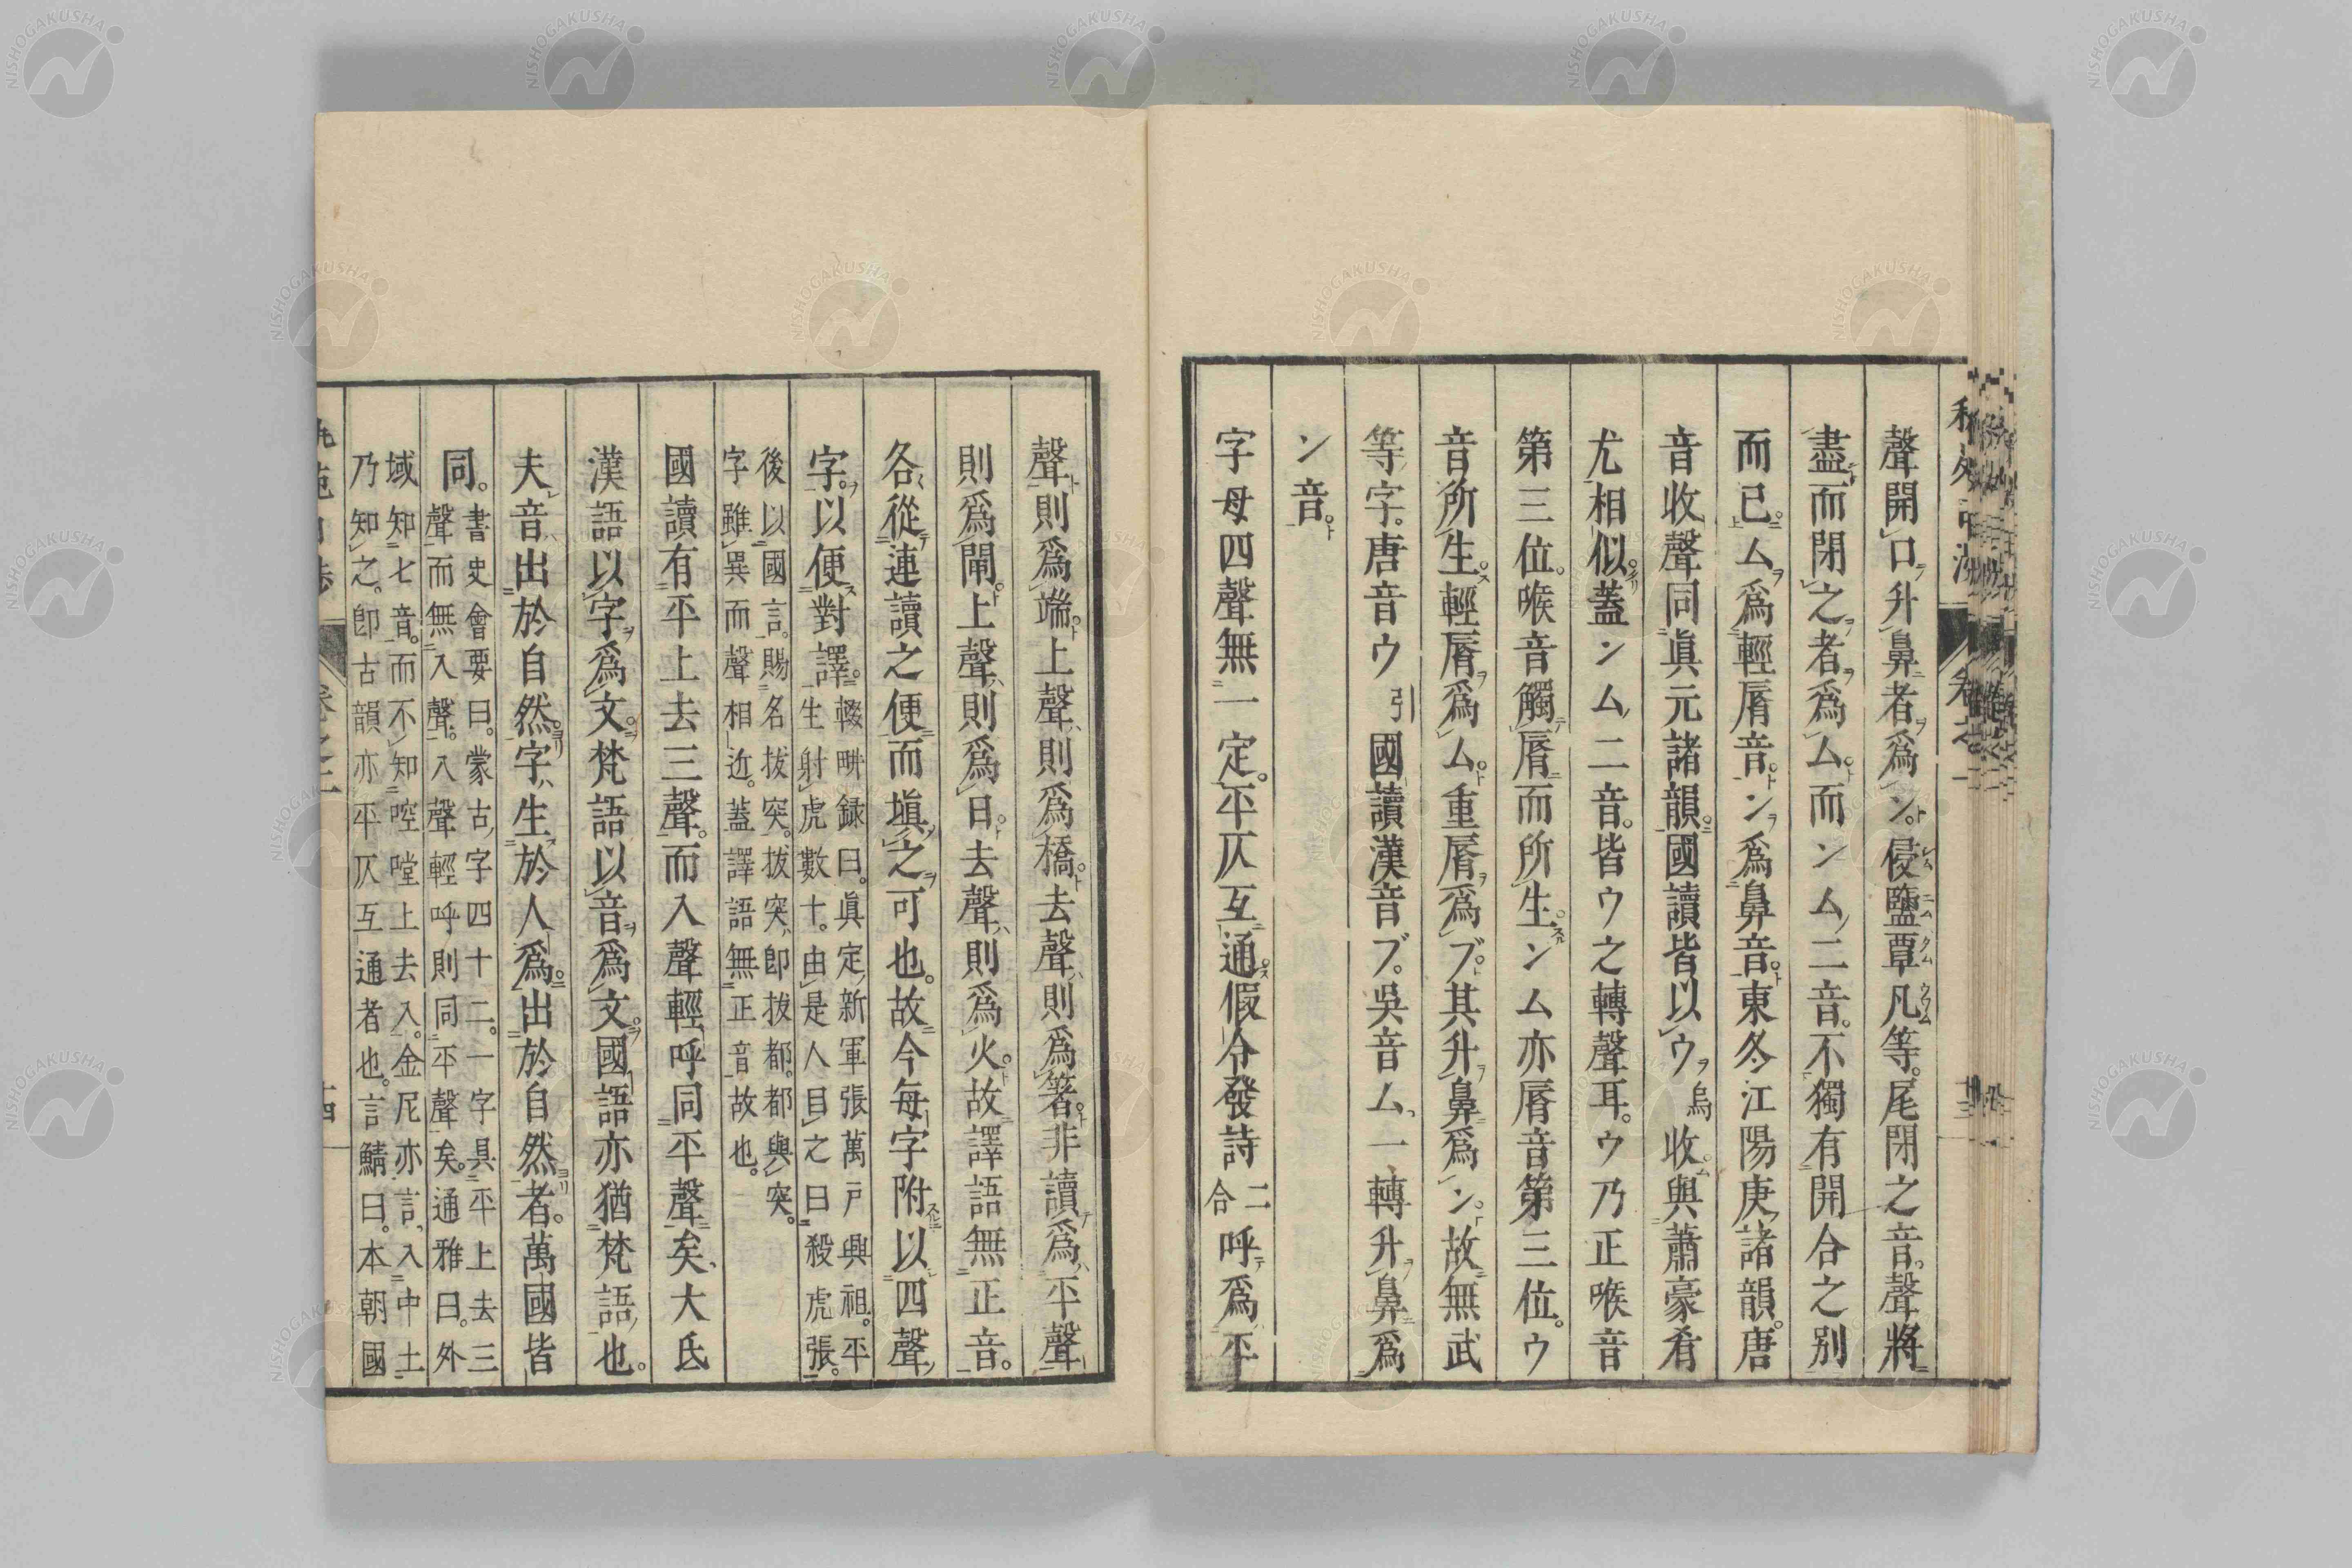 聲開口升鼻者爲ン。侵鹽覃凡等。尾閉之音。聲將
盡而閉之者爲ム。而ンム二音。不獨有開合之別
而已。ム爲輕脣音。ン爲鼻音。東冬江陽庚諸韻。唐
音收聲同眞元諸韻。國讀皆以ウ烏收。與蕭豪肴
尤相似。蓋ンム二音。皆ウ之轉聲耳。ウ乃正喉音
第三位。喉音觸脣而所生。ンム亦脣音第三位。ウ
音所生。輕脣爲ム。重脣爲ブ。其升鼻爲ン。故無武
等字。唐音ウ引國讀漢音ブ。吳音ム。一轉升鼻爲
ン音。
字母四聲無一定。平仄互通。假令發詩二合呼爲平
聲則爲端。上聲則爲橋。去聲則爲箸。非讀爲平聲
則爲閘。上聲則爲日。去聲則爲火。故譯語無正音。
各從連讀之便而塡之可也。故今每字附以四聲
字。以便對譯。輟畊録曰。眞定新軍張萬戶興祖。平
生射虎數十。由是人目之曰殺虎張。
後以國言。賜名拔突。拔突卽拔都。都與突。
字雖異而聲相近。蓋譯語無正音故也。
國讀有平上去三聲。而入聲輕呼同平聲矣。大氏
漢語以字爲文。梵語以音爲文。國語亦猶梵語也。
夫音出於自然。字生於人爲。出於自然者。萬國皆
同。書史會要曰。蒙古字四十二。一字具平上去三
聲而無入聲。入聲輕呼則同平聲矣。通雅曰。外
域知七音。而不知啌嘡上去入。金尼亦言入中土
乃知之。卽古韻亦平仄互通者也。言鯖曰。本朝國
NISHOGAKUSHA